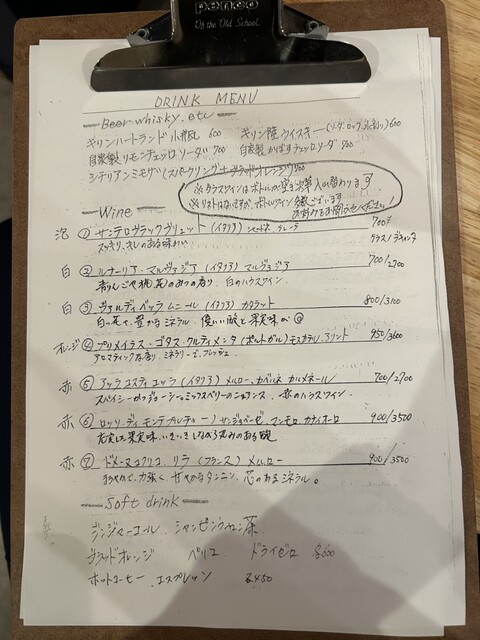 penco
Off the Old School.
DRINK MENU
Beer whisky. etc
キリンハートランド 小瓶 600 キリン陸ウイスキー(ソーダ、ロック、水割り) 600
自家製リモンチェッロソーダ 700 自家製 かぼすチェッロソーダ 700
シチリアンミモザ(スパークリング+ブラッドオレンジ) 900
※グラスワインはボトルが空き次第入れ替わります
※リストはないですが、ボトルワイン多数ございます
お好みをお聞かせください!
Wine
泡 ① サンテロ ブラック ブリュット (イタリア) 700
スッキリ、キレのある味わい グラス/デキャンタ
白 ② ルナーリア・マルヴァジア (イタリア) マルヴァジア 700/2700
青りんごや桃、花のみつの香り 白のハウスワイン
白 ③ ヴァルディベッラ ムニール (イタリア) カタラット 800/3100
白い花と豊かなミネラル 優しい酸と果実味が◎
オレンジ ④ プリメイラス・ゴタス・クルティメンタ (ポルトガル) 950/3600
アロマティックな香り、ミネラリーで、フレッシュ。
赤 ⑤ (イタリア) メルロー、カベルネ カルメネール 700/2700
スパイシーかつジューシー。ミックスベリーのニュアンス、赤のハウスワイン
赤 ⑥ ロッソ・ディ モンテプルチアーノ サンジョベーゼ、マンモロ カナイオーロ 900/3500
充実した果実味、いきいきしながら深みのある味
赤 ⑦ ドメーヌ コクリコ、リラ (フランス) メルロー 900/3500
まろやかで、力強く 甘やかなタンニン、芯のあるミネラル。
Soft drink
ジンジャーエール シャンピンウーロン茶
ブラッドオレンジ ペリエ ドライゼロ 各600
ホットコーヒー、エスプレッソ 各450